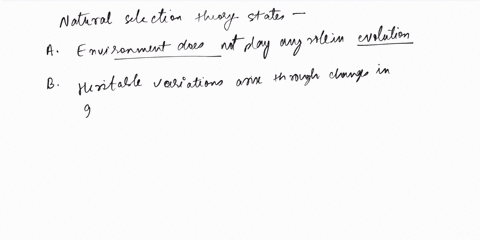 Natural selection theory states -
A. Environment does not play any role in evolution
B. Heritable variations arise through changes in
g